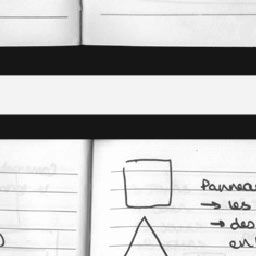 Pannea
→ les
→ des
en